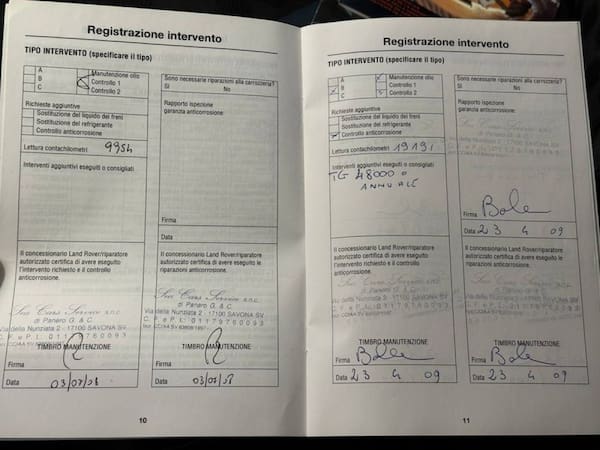 Registrazione intervento
TIPO INTERVENTO (specificare il tipo)
A Manutenzione olio
B Controllo 1
C Controllo 2
Richieste aggiuntive
Sostituzione del liquido dei freni
Sostituzione del refrigerante
Controllo anticorrosione
Lettura contachilometri 9954
Interventi aggiuntivi eseguiti o consigliati
Sono necessarie riparazioni alla carrozzeria?
Sì No
Rapporto ispezione
garanzia anticorrosione:
Firma
Data
Il concessionario Land Rover/riparatore
autorizzato certifica di avere eseguito
l'intervento richiesto e il controllo
anticorrosione.
di Panero G. & C
Via della Nunziata 2 - 17100 SAVONA SV
C.F. e P.I. 01179760093
TIMBRO MANUTENZIONE
Firma
Data 03/07/08
Il concessionario Land Rover/riparatore
autorizzato certifica di avere eseguito le
riparazioni anticorrosione.
di Panero G. & C
Via della Nunziata 2 - 17100 SAVONA SV
C.F. e P.I. 01179760093
TIMBRO MANUTENZIONE
Firma
Data 03/07/08
10
Registrazione intervento
TIPO INTERVENTO (specificare il tipo)
A Manutenzione olio
B Controllo 1
C Controllo 2
Richieste aggiuntive
Sostituzione del liquido dei freni
Sostituzione del refrigerante
Controllo anticorrosione
Lettura contachilometri 19191
Interventi aggiuntivi eseguiti o consigliati
TG 48000 o
ANNUALE
Sono necessarie riparazioni alla carrozzeria?
Sì No
Rapporto ispezione
garanzia anticorrosione:
Firma
Data 23 4 09
Il concessionario Land Rover/riparatore
autorizzato certifica di avere eseguito
l'intervento richiesto e il controllo
anticorrosione.
di Panero G. & C
Via della Nunziata 2 - 17100 SAVONA SV
TIMBRO MANUTENZIONE
Firma
Data 23 4 09
Il concessionario Land Rover/riparatore
autorizzato certifica di avere eseguito le
riparazioni anticorrosione.
di Panero G. & C
Via della Nunziata 2 - 17100 SAVONA SV
TIMBRO MANUTENZIONE
Firma
Data 23 4 09
11